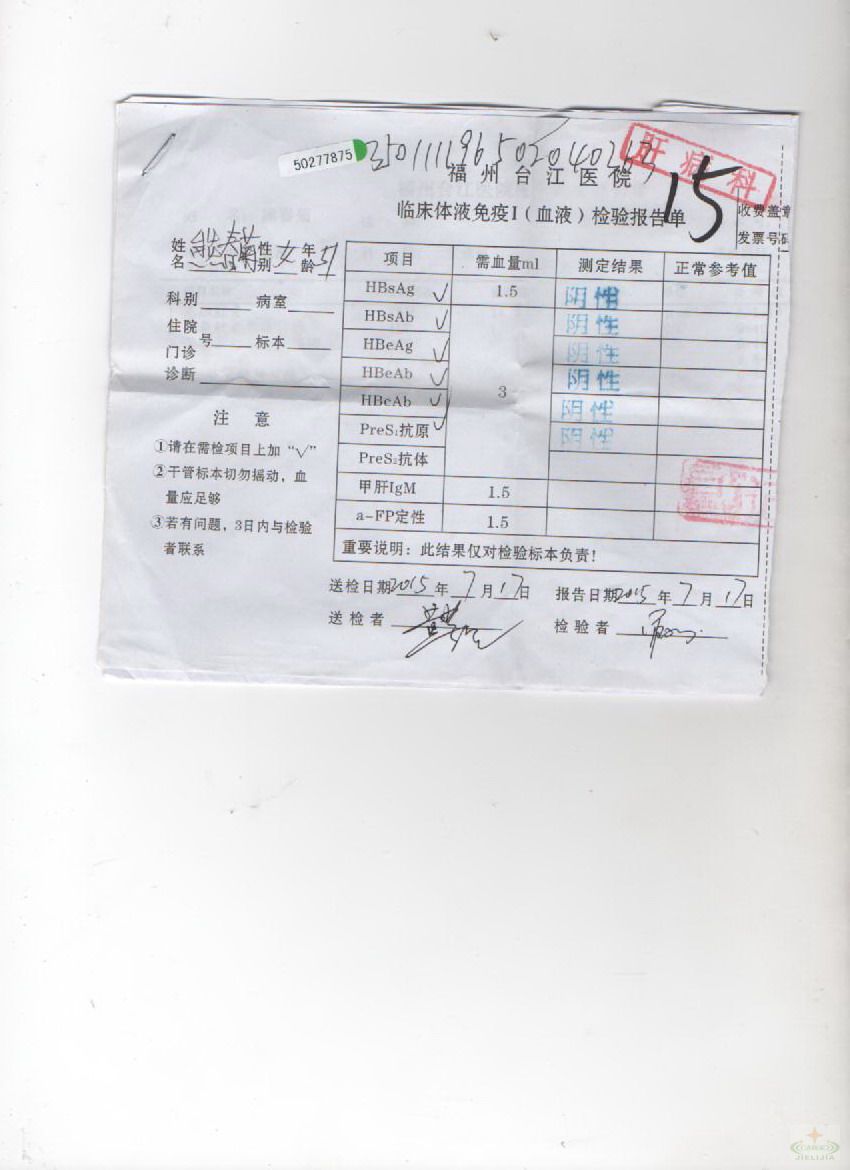 50277875
肝病科
15
福州台江医院
临床体液免疫I（血液）检验报告单
收费盖章
发票号码
姓名 性别 女 年龄 51
科别 病室
住院
号 标本
门诊
诊断
注 意
①请在需检项目上加“√”
②干管标本切勿摇动，血
量应足够
③若有问题，3日内与检验
者联系
项目 需血量ml 测定结果 正常参考值
HBsAg √ 1.5 阴性
HBsAb √ 阴性
HBeAg √ 阴性
HBeAb √ 3 阴性
HBcAb √ 阴性
PreS₁抗原 √ 阴性
PreS₂抗体
甲肝IgM 1.5
a-FP定性 1.5
重要说明：此结果仅对检验标本负责！
送检日期2015年7月17日 报告日期2015年7月17日
送检者 检验者
JIELIJIA